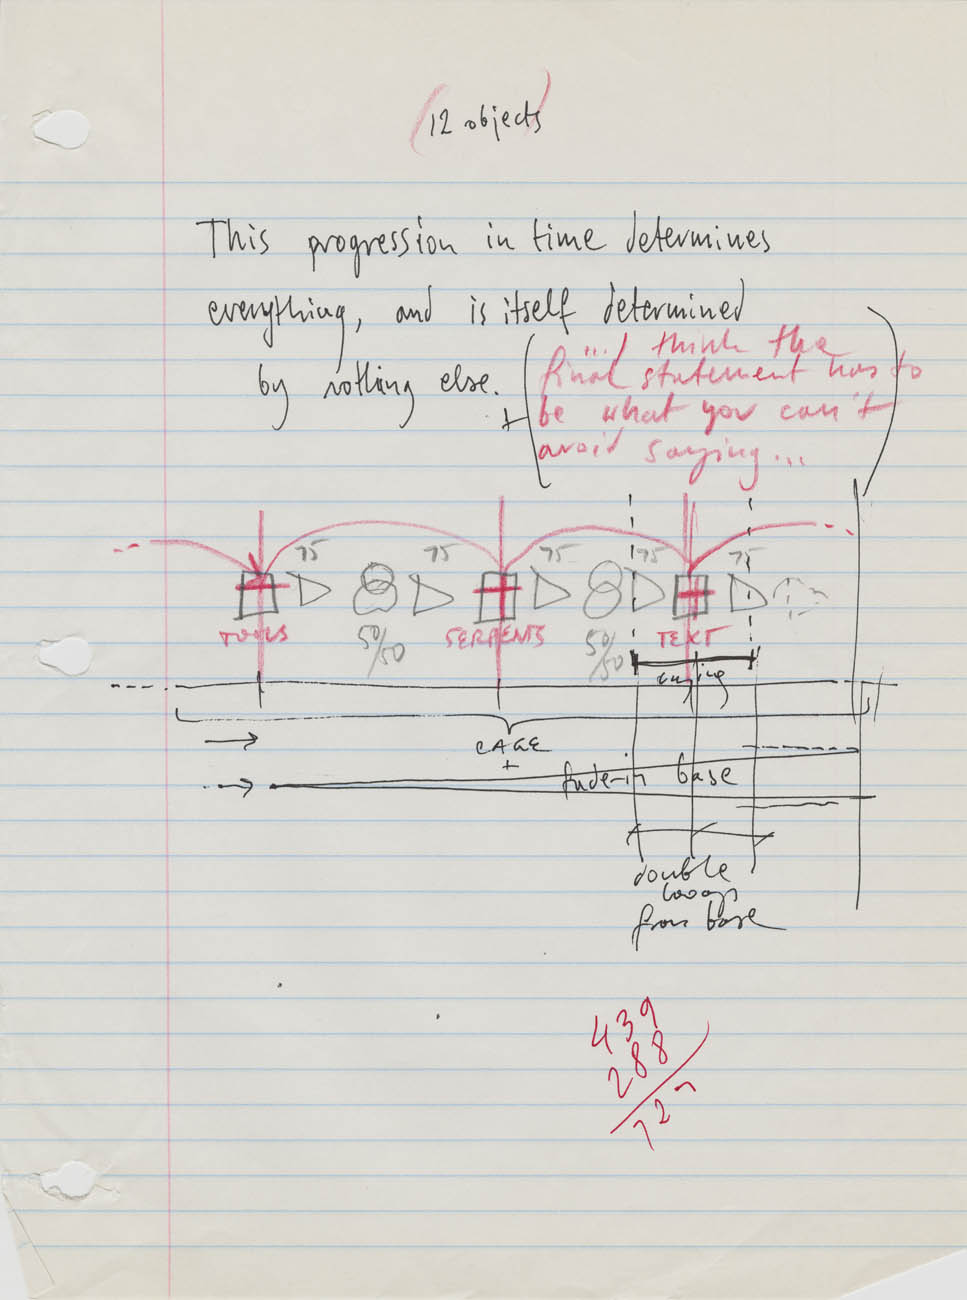 (12 objects)
This progression in time determines
everything, and is itself determined
by nothing else.
+ (...I think the
final statement has to
be what you can't
avoid saying...)
75 75 75 75 75
TOOLS SERPENTS TEXT
50/50 50/50
CAGE
+
fade-in base
double
loops
from base
439
288
727